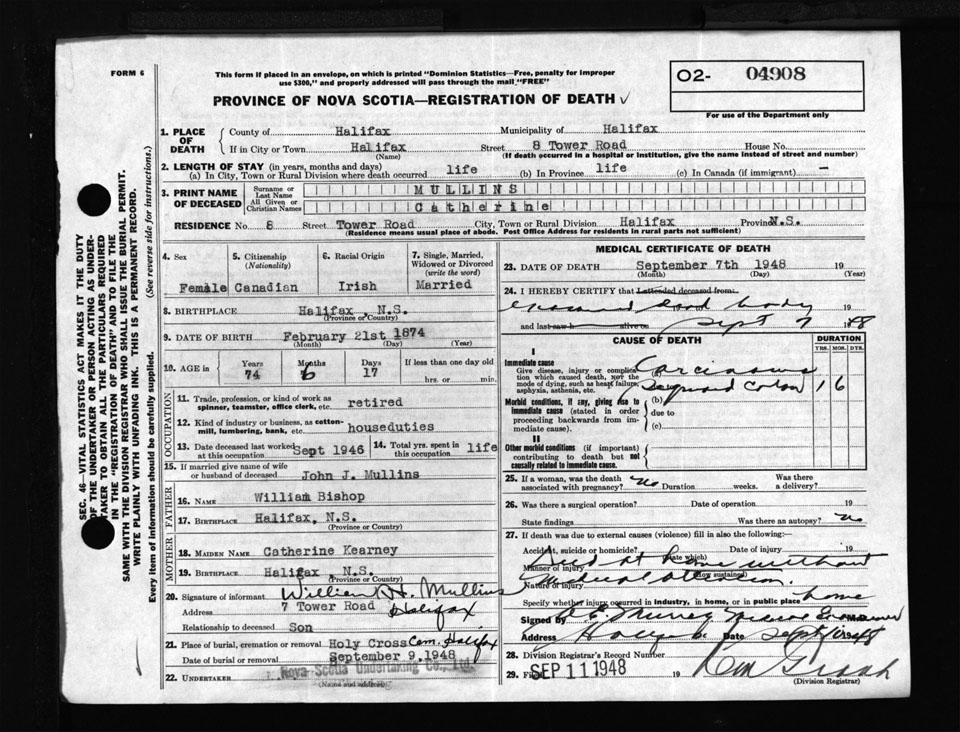 FORM 6
This form if placed in an envelope, on which is printed "Dominion Statistics—Free, penalty for improper
use $300," and properly addressed will pass through the mail "FREE"
PROVINCE OF NOVA SCOTIA—REGISTRATION OF DEATH ✓
O2- 04908
For use of the Department only
SEC. 46—VITAL STATISTICS ACT MAKES IT THE DUTY
OF THE UNDERTAKER OR PERSON ACTING AS UNDER-
TAKER TO OBTAIN ALL THE PARTICULARS REQUIRED
IN THE "REGISTRATION OF DEATH" AND TO FILE THE
SAME WITH THE DIVISION REGISTRAR WHO SHALL ISSUE THE BURIAL PERMIT.
WRITE PLAINLY WITH UNFADING INK. THIS IS A PERMANENT RECORD.
Every item of information should be carefully supplied. (See reverse side for instructions.)
1. PLACE OF DEATH County of Halifax Municipality of Halifax
If in City or Town Halifax Street 8 Tower Road House No.
(Name) (If death occurred in a hospital or institution, give the name instead of street and number)
2. LENGTH OF STAY (in years, months and days)
(a) In City, Town or Rural Division where death occurred life (b) In Province life (c) In Canada (if immigrant) —
3. PRINT NAME OF DECEASED Surname or Last Name MULLINS
All Given or Christian Names Catherine
RESIDENCE No. 8 Street Tower Road City, Town or Rural Division Halifax Province N.S.
(Residence means usual place of abode. Post Office Address for residents in rural parts not sufficient)
4. Sex 5. Citizenship (Nationality) 6. Racial Origin 7. Single, Married, Widowed or Divorced (write the word)
Female Canadian Irish Married
8. BIRTHPLACE Halifax, N.S.
(Province or Country)
9. DATE OF BIRTH February 21st 1874
(Month) (Day) (Year)
10. AGE IN Years Months Days If less than one day old
74 6 17 hrs. or min.
OCCUPATION
11. Trade, profession, or kind of work as
spinner, teamster, office clerk, etc. retired
12. Kind of industry or business, as cotton-
mill, lumbering, bank, etc. houseduties
13. Date deceased last worked at this occupation Sept 1946 14. Total yrs. spent in this occupation life
15. If married give name of wife
or husband of deceased John J. Mullins
FATHER
16. NAME William Bishop
17. BIRTHPLACE Halifax, N.S.
(Province or Country)
MOTHER
18. MAIDEN NAME Catherine Kearney
19. BIRTHPLACE Halifax N.S.
(Province or Country)
20. Signature of informant William H. Mullins
Address 7 Tower Road Halifax
Relationship to deceased Son
21. Place of burial, cremation or removal Holy Cross Cem. Halifax
Date of burial or removal September 9, 1948
22. UNDERTAKER Nova Scotia Undertaking Co., Ltd.
(Name and address)
MEDICAL CERTIFICATE OF DEATH
23. DATE OF DEATH September 7th 1948
(Month) (Day) (Year)
24. I HEREBY CERTIFY that I attended deceased from:
dead body 19
and last saw h alive on Sept 7 1948
CAUSE OF DEATH DURATION
YRS. MOS. DYS.
I
Immediate cause
Give disease, injury or complication which caused death, not the mode of dying, such as heart failure, asphyxia, asthenia, etc.
Carcinoma
Sigmoid Colon 1 6
Morbid conditions, if any, giving rise to immediate cause (stated in order proceeding backwards from immediate cause).
(b)
due to
(c)
II
Other morbid conditions (if important) contributing to death but not causally related to immediate cause.
25. If a woman, was the death associated with pregnancy? No Duration weeks. Was there a delivery?
26. Was there a surgical operation? Date of operation 19
State findings Was there an autopsy? no
27. If death was due to external causes (violence) fill in also the following:—
Accident, suicide or homicide? Date of injury 19
(State which)
Manner of injury died at home without
(How sustained)
Nature of injury medical attention.
Specify whether injury occurred in industry, in home, or in public place home
Signed by Murray
Address Date Sept 1948
28. Division Registrar's Record Number
29. Filed SEP 11 1948 19
(Division Registrar)